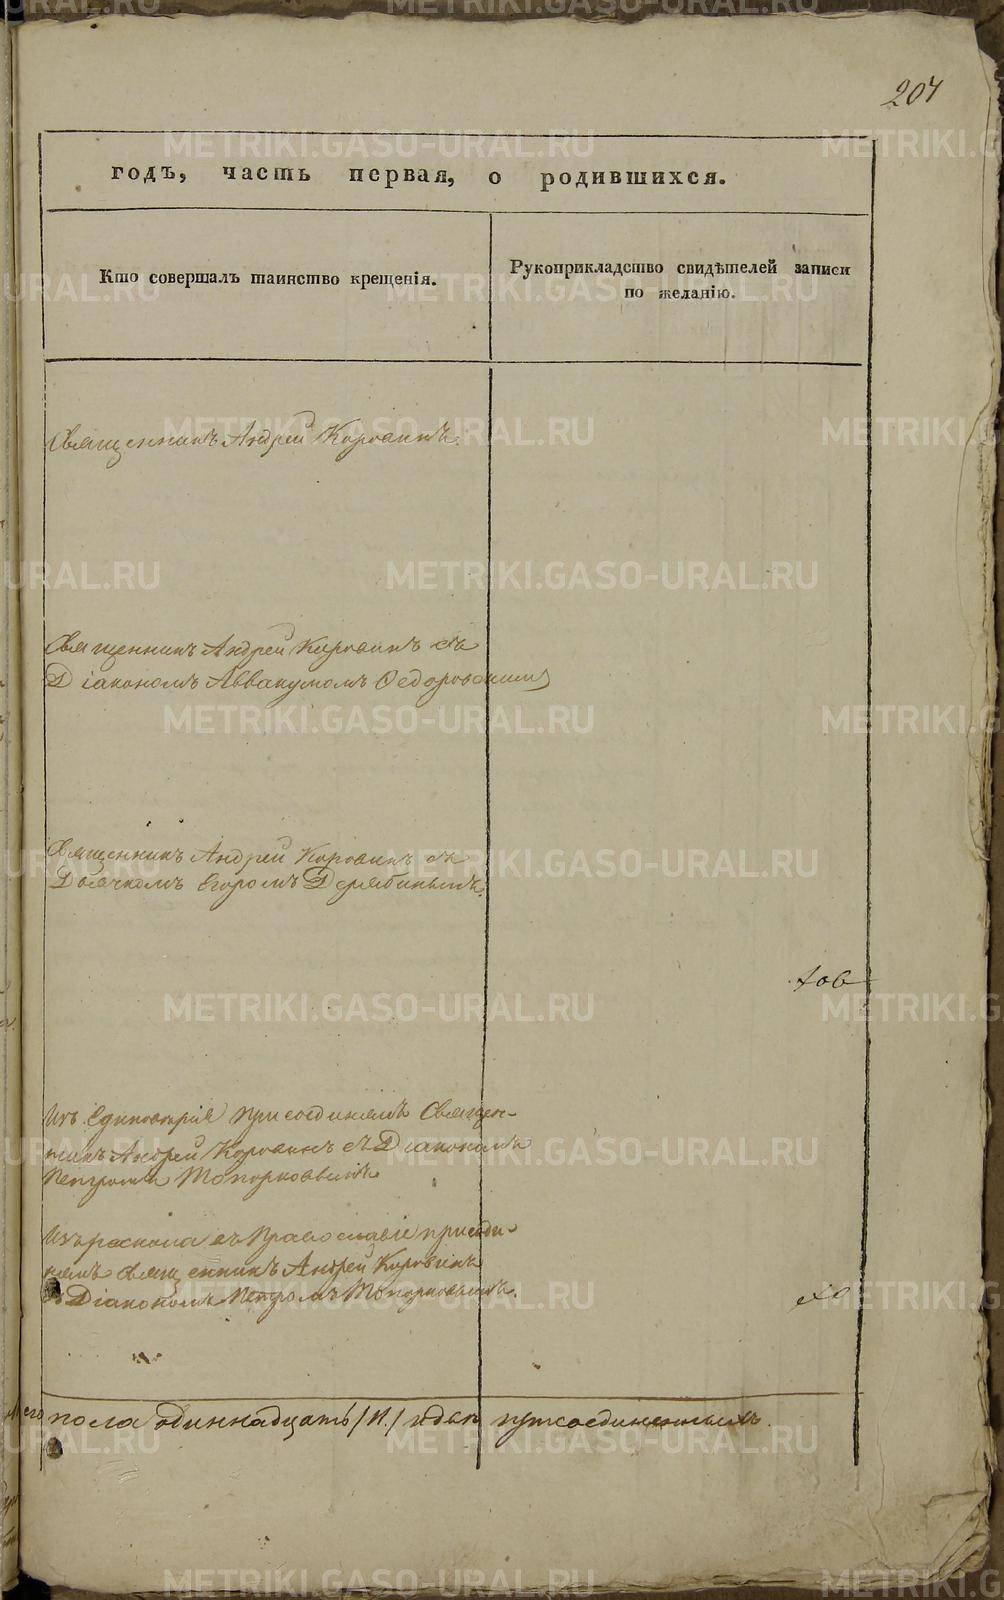 207
годъ, часть первая, о родившихся.
Кто совершалъ таинство крещенія.
Рукоприкладство свидѣтелей записи
по желанію.
Священникъ Андрей Коровинъ.
Священникъ Андрей Коровинъ съ
Діакономъ Аввакумомъ Федоровскимъ
Священникъ Андрей Коровинъ съ
Дьячкомъ Егоромъ Дерябинымъ.
Изъ Единовѣрія присоединялъ Священ-
никъ Андрей Коровинъ съ Діакономъ
Петромъ Топорковымъ
Изъ раскола въ Православіе присоеди-
нялъ священникъ Андрей Коровинъ
съ Діакономъ Петромъ Топорковымъ.
пола одиннадцать присоединенныхъ.
METRIKI.GASO-URAL.RU